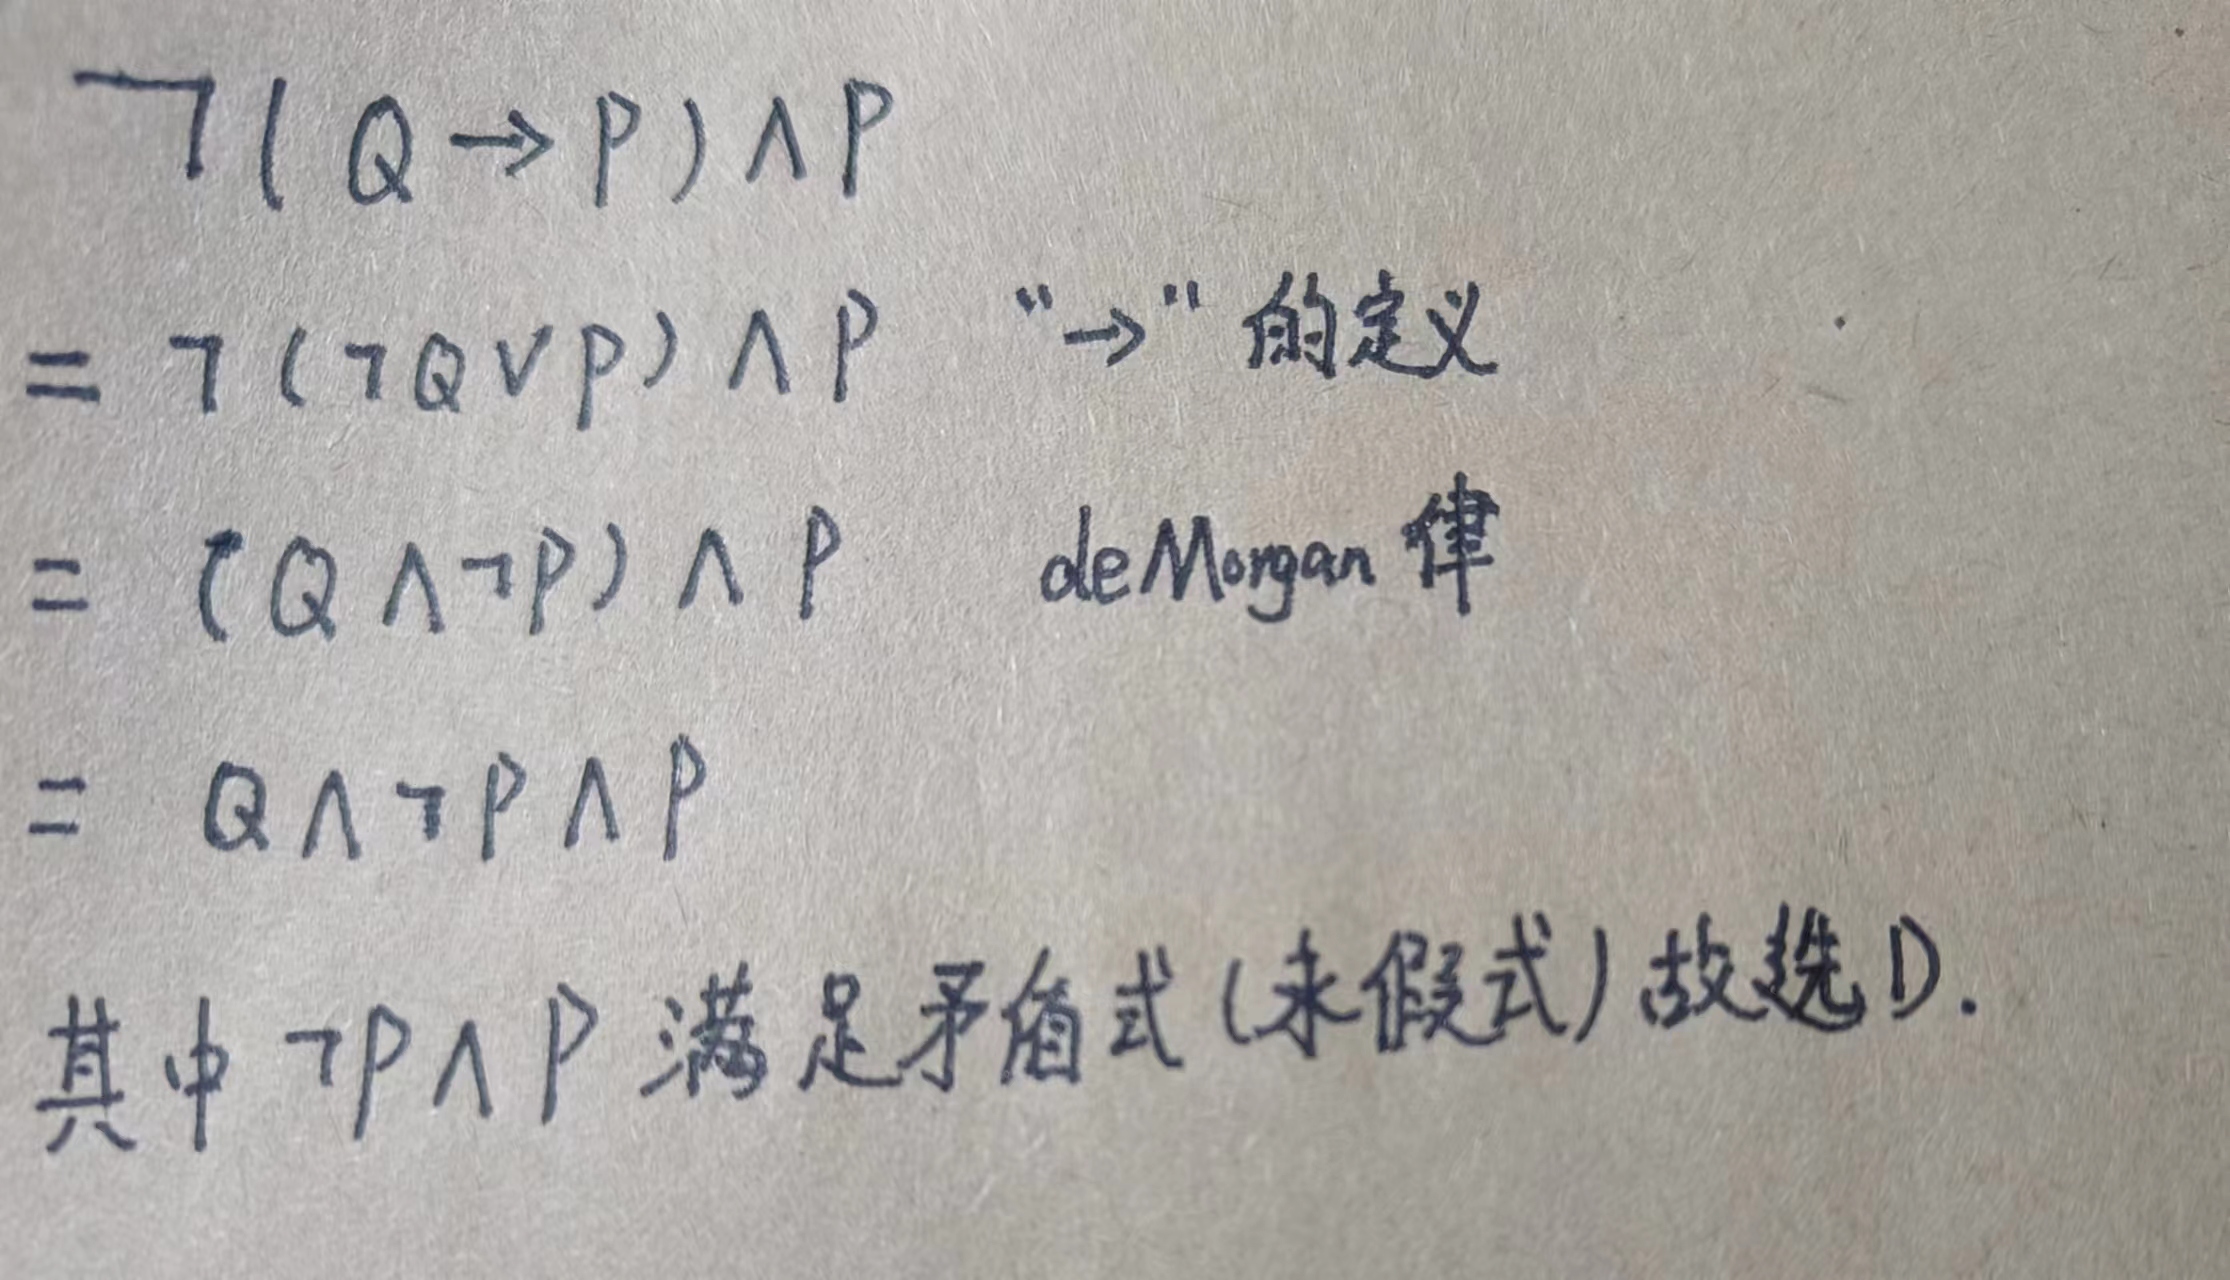 ¬(Q→P)∧P
=¬(¬Q∨P)∧P “→”的定义
=(Q∧¬P)∧P deMorgan律
=Q∧¬P∧P
其中¬P∧P满足矛盾式(永假式)故选D.